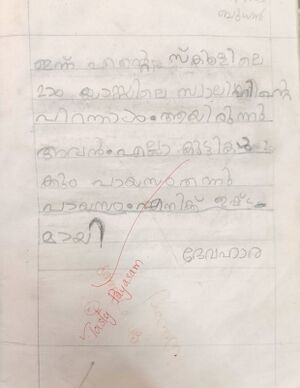 ബുധൻ
ഇന്ന് എന്റെ സ്കൂളിലെ
2ാം ക്ലാസ്സിലെ
പിറന്നാൾ ആയിരുന്നു
അവൻ എല്ലാ കുട്ടികൾ
ക്കും പായസം തന്നു
പായസം എനിക്ക് ഇഷ്ട
മായി
ദേവഹാര
Tasty Payasam